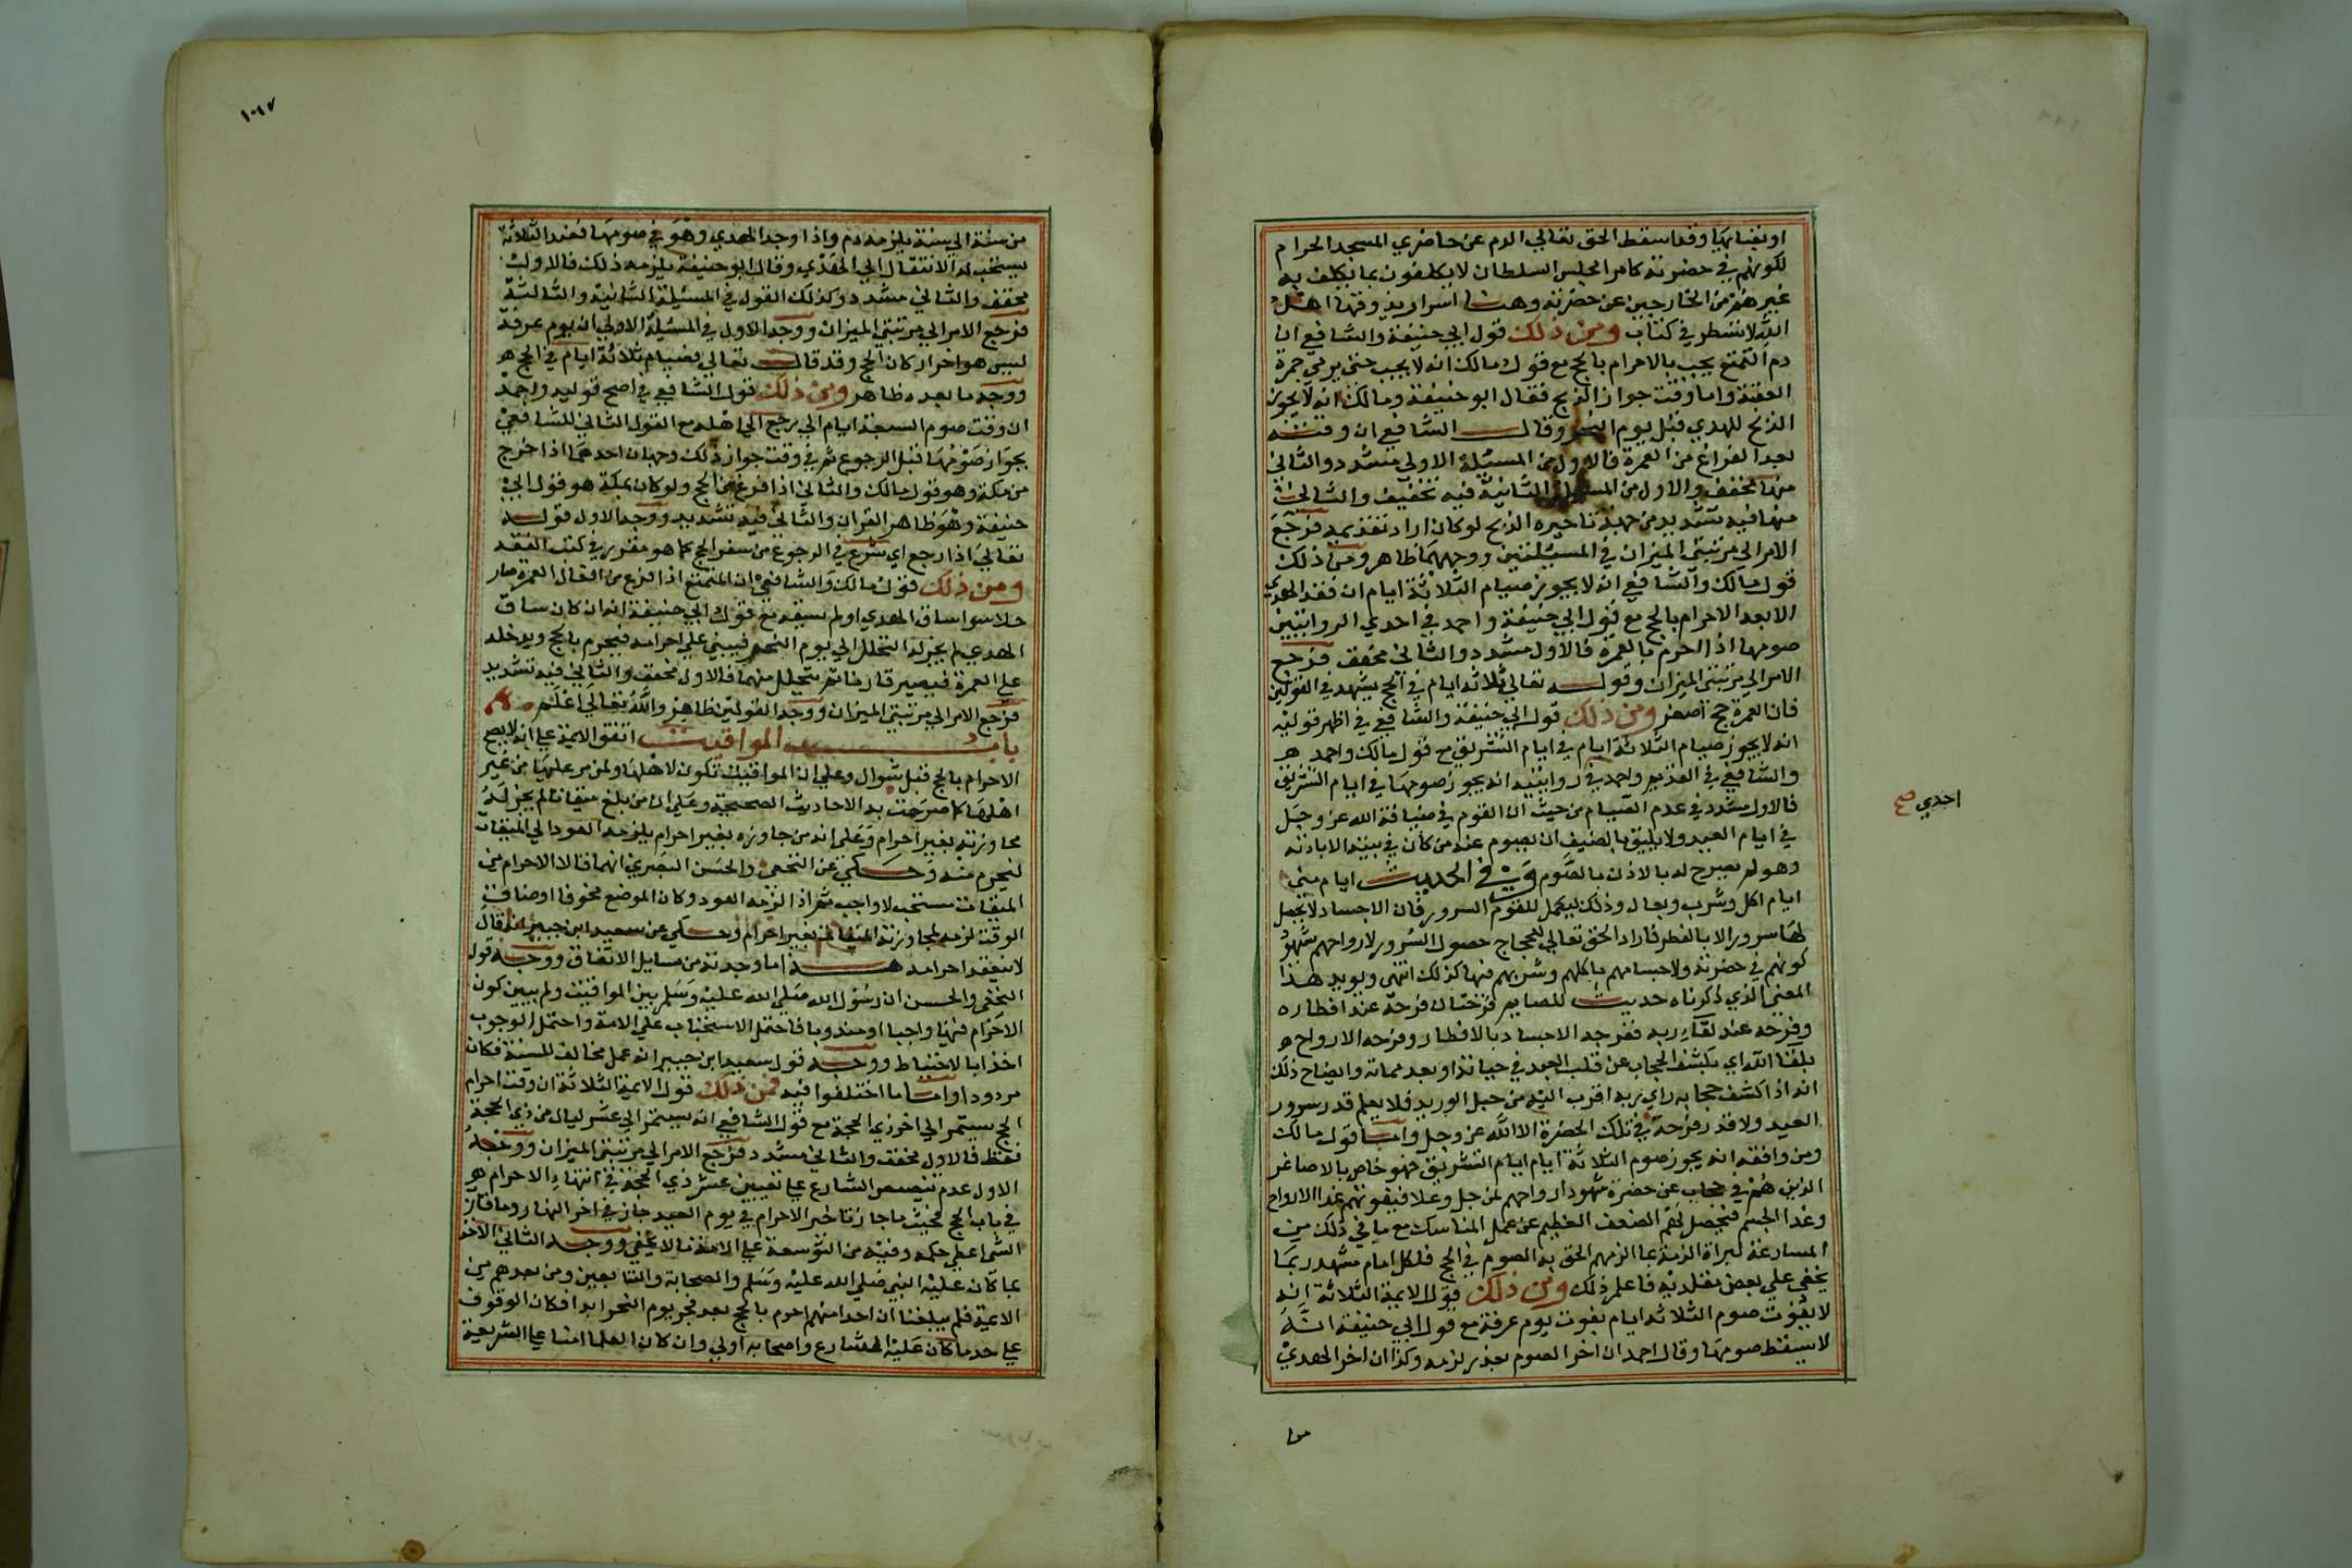 او بغيابها وقد اسقط الحق تعالي الدم عن حاضري المسجد الحرام
لكونهم في حضرته كامرا مجلس السلطان لا يكلفون بما يكلف به
غيرهم من الخارجين عن حضرته وهنا اسرار يذوقها اهل
الله لا تسطر في كتاب ومن ذلك قول ابي حنيفة والشافعي ان
دم التمتع يجب بالاحرام بالحج مع قول مالك انه لا يجب حتي يرمي جمرة
العقبة واما وقت جواز الذبح فقال ابو حنيفة ومالك انه لا يجوز
الذبح للهدي قبل يوم النحر وقال الشافعي ان وقته
بعد الفراغ من العمرة فالاول من المسئلة الاولي مشدد والثاني
منها مخفف والاول من المسئلة الثانية فيه تخفيف والثاني
منها فيه تشديد من جهة تاخيره الذبح لو كان اراد تقديمه فرجع
الامر الي مرتبتي الميزان في المسئلتين ووجههما ظاهر ومن ذلك
قول مالك والشافعي انه لا يجوز صيام الثلاثة ايام ان فقد الهدي
الا بعد الاحرام بالحج مع قول ابي حنيفة واحمد في احدي الروايتين
صومها اذا احرم بالعمرة فالاول مشدد والثاني مخفف فرجع
الامر الي مرتبتي الميزان وقوله تعالي ثلاثة ايام في الحج يشهد في القولين
فان العمرة حج اصغر ومن ذلك قول ابي حنيفة والشافعي في اظهر قوليه
انه لا يجوز صيام الثلاثة ايام في ايام التشريق مع قول مالك واحمد
والشافعي في القديم واحمد في روايتيه انه يجوز صومها في ايام التشريق
احدي صح
فالاول مشدد في عدم الصيام من حيث ان القوم في ضيافة الله عز وجل
في ايام العيد ولا يليق بالضيف ان يصوم عند من كان في بيته الا باذنه
وهو لم يصرح له بالاذن بالصوم وفي الحديث ايام مني
ايام اكل وشرب وبعال وذلك ليكمل للقوم السرور فان الاجساد لا يحصل
لها سرور الا بالفطر فاراد الحق تعالي للحجاج حصول السرور لارواحهم بشهود
كونهم في حضرته ولاجسامهم باكلهم وشربهم فيها كذلك انتهي ويويد هذا
المعني الذي ذكرناه حديث للصايم فرحتان فرحة عند افطاره
وفرحة عند لقاء ربه ففرحه الاجساد بالافطار وفرحه الارواح
بلقاالله اي بكشف الحجاب عن قلب العبد في حياته او بعد مماته وايضاح ذلك
انه اذا كشف حجابه راي ربه اقرب اليه من حبل الوريد فلا يعلم قدر سرور
العبد ولا قدر فرحه في تلك الحضرة الا الله عز وجل واما قول مالك
ومن وافقه انه يجوز صوم الثلاثة ايام ايام التشريق فهو خاص بالاصاغر
الذين هم في حجاب عن حضرة شهود ارواحهم لمن جل وعلا فيفوتهم غدا الارواح
وغدا الجسم فيحصل لهم الضعف العظيم عن عمل المناسك مع ما في ذلك من
المسارعة لبراة الذمة بما الزمهم الحق به الصوم في الحج فلكل امام مشهد ربما
يخفي علي بعض مقلديه فاعلم ذلك ومن ذلك قول الايمة الثلاثة انه
لا يفوت صوم الثلاثة ايام بفوت يوم عرفة مع قول ابي حنيفة انه
لا يسقط صومها وقال احمد ان اخر الصوم بعذر لزمه وكذا ان اخر الهدي
من
١٠١٧
من سنة الي سنة يلزمه دم واذا وجد الهدي وهو في صومها فعند الثلاثة
يستحب له الانتقال الي الهدي وقال ابو حنيفة يلزمه ذلك فالاول
مخفف والثاني مشدد وكذلك القول في المسئلة الثانية والثالثة
فرجع الامر الي مرتبتي الميزان ووجه الاول في المسئلة الاولي ان يوم عرفة
ليس هو اخر اركان الحج وقد قال تعالي فصيام ثلاثة ايام في الحج
ووجه ما بعده ظاهر ومن ذلك قول الشافعي في اصح قوليه واحمد
ان وقت صوم السبعة ايام الي يرجع الي اهله مع القول الثاني للشافعي
بجواز صومها قبل الرجوع ثم في وقت جواز ذلك وجهان احدهما اذا خرج
من مكة وهو قول مالك والثاني اذا فرغ من الحج ولو كان بمكة هو قول ابي
حنيفة وهو ظاهر القران والثاني فيه تشديد ووجه الاول قوله
تعالي اذا رجع اي شرع في الرجوع من سفر الحج كما هو مقرر في كتب الفقه
ومن ذلك قول مالك والشافعي ان المتمتع اذا فرغ من افعال العمرة صار
حلالا سوا ساق الهدي او لم يسقه مع قول ابي حنيفة انه ان كان ساق
الهدي لم يجز له التحلل الي يوم النحر فيبقي علي احرامه فيحرم بالحج ويدخله
علي العمرة فيصير قارنا ثم يتحلل منهما فالاول مخفف والثاني فيه تشديد
فرجع الامر الي مرتبتي الميزان ووجه القولين ظاهر والله تعالي اعلم
باب المواقيت اتفق الايمة علي انه لا يصح
الاحرام بالحج قبل شوال وعلي ان المواقيت تكون لاهلها ولمن مر عليها من غير
اهلها كما صرحت به الاحاديث الصحيحة وعلي ان من بلغ ميقاتا لم يجز له
مجاوزته بغير احرام وعلي انه من جاوزه بغير احرام يلزمه العود الي الميقات
ليحرم منه وحكي عن النخعي والحسن البصري انهما قالا الاحرام من
الميقات مستحب لا واجب ثم اذا لزمه العود وكان الموضع مخوفا او ضاق
الوقت لزمه لمجاوزته الميقات بغير احرام وحكي عن سعيد ابن جبير انه قال
لا ينعقد احرامه هذا ما وجدته من مسايل الاتفاق ووجه قول
النخعي والحسن ان رسول الله صلي الله عليه وسلم بين المواقيت ولم يبين كون
الاحرام فيها واجبا او مندوبا فاحتمل الاستحباب علي الامة واحتمل الوجوب
اخذا بالاحتياط ووجه قول سعيد ابن جبير انه عمل مخالف للسنة فكان
مردودا واما ما اختلفوا فيه فمن ذلك قول الايمة الثلاثة ان وقت احرام
الحج يستمر الي اخر ذي الحجة مع قول الشافعي انه يستمر الي عشر ليال من ذي الحجة
فقط فالاول مخفف والثاني مشدد فرجع الامر الي مرتبتي الميزان ووجه
الاول عدم تنصيص الشارع علي تعيين عشر ذي الحجة في انتهاء الاحرام
في باب الحج فحيث ما جاز تاخير الاحرام في يوم العيد جاز في اخر النهار وما قارب
الشي اعطي حكمه وفيه من التوسعة علي الامة ما لا يخفي ووجه الثاني الاخذ
بما كان عليه النبي صلي الله عليه وسلم والصحابة والتابعين ومن بعدهم من
الايمة فلم يبلغنا ان احدا منهم احرم بالحج بعد فجر يوم النحر ابدا فكان الوقوف
علي حد ما كان عليه الشارع واصحابه اولي وان كان العلما امنا علي الشريعة